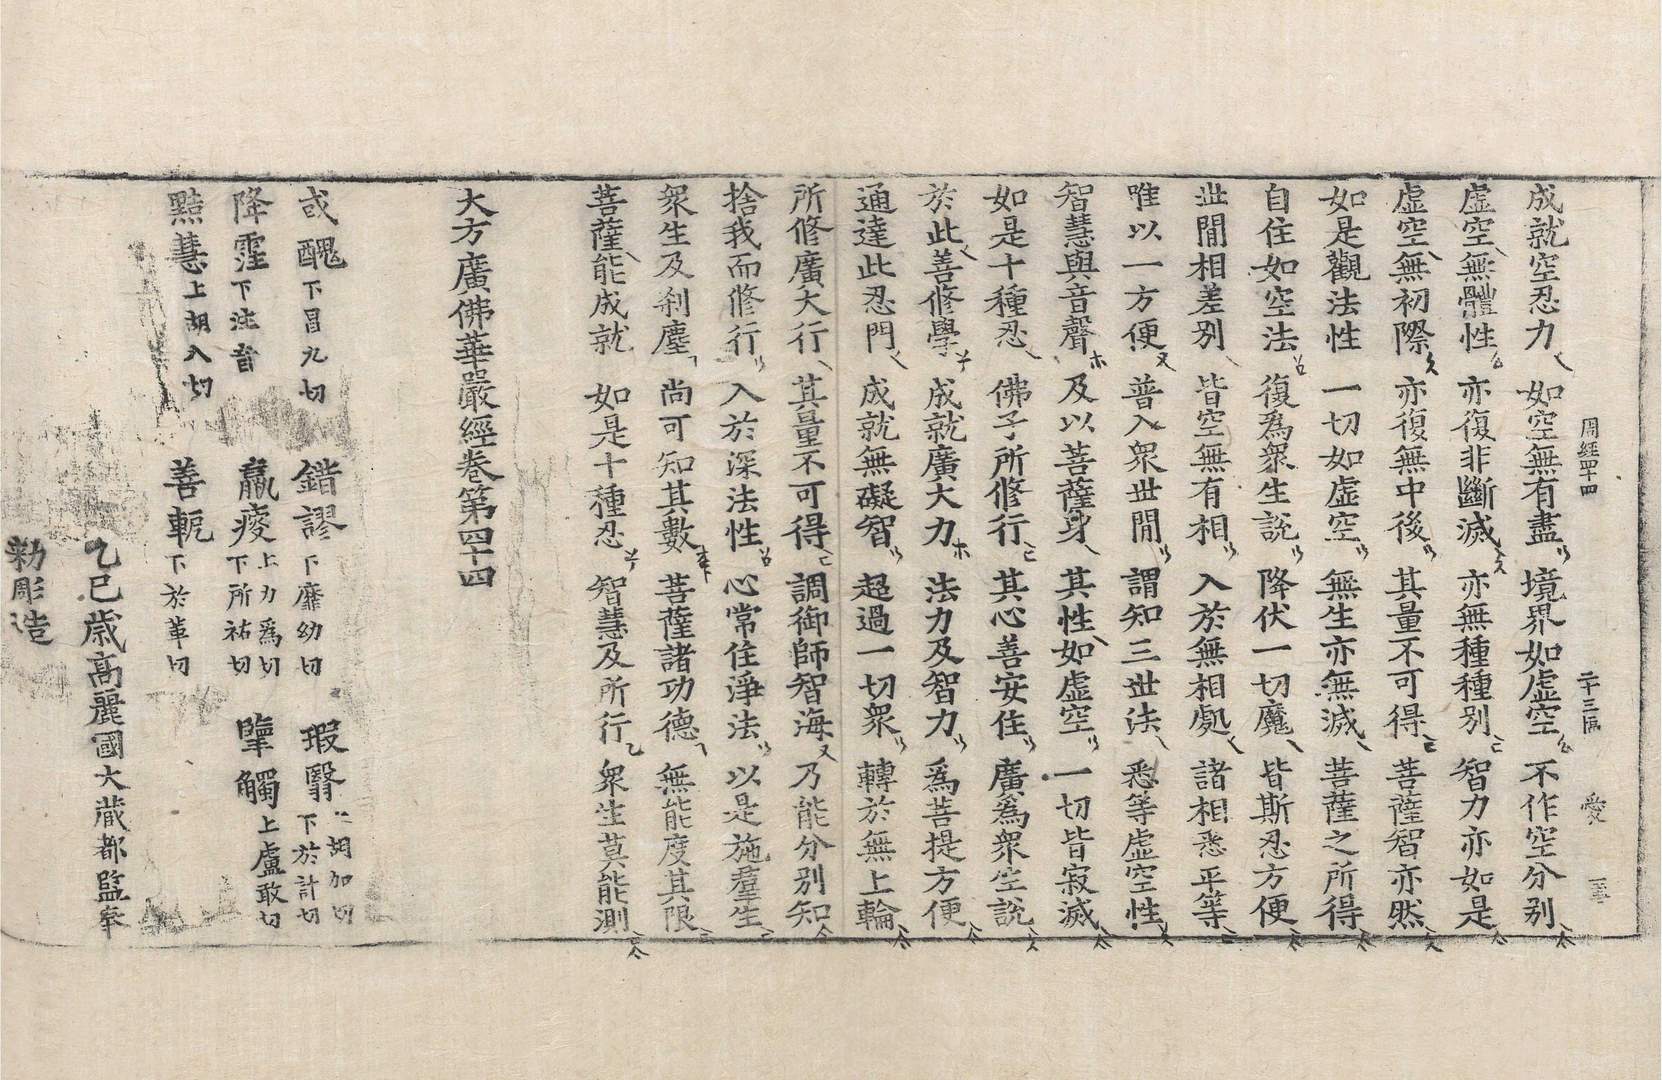 周經四十四 二十三區 愛
成就空忍力 如空無有盡 境界如虛空 不作空分別
虛空無體性 亦復非斷滅 亦無種種別 智力亦如是
虛空無初際 亦復無中後 其量不可得 菩薩智亦然
如是觀法性 一切如虛空 無生亦無滅 菩薩之所得
自住如空法 復為衆生說 降伏一切魔 皆斯忍方便
世間相差別 皆空無有相 入於無相處 諸相悉平等
唯以一方便 普入衆世間 謂知三世法 悉等虛空性
智慧與音聲 及以菩薩身 其性如虛空 一切皆寂滅
如是十種忍 佛子所修行 其心善安住 廣為衆生說
於此善修學 成就廣大力 法力及智力 為菩提方便
通達此忍門 成就無礙智 超過一切衆 轉於無上輪
所修廣大行 其量不可得 調御師智海 乃能分別知
捨我而修行 入於深法性 心常住淨法 以是施羣生
衆生及刹塵 尚可知其數 菩薩諸功德 無能度其限
菩薩能成就 如是十種忍 智慧及所行 衆生莫能測
大方廣佛華嚴經卷第四十四
或醜下昌九切 錯謬下靡幼切 瑕翳上胡加切下於計切
降霔下注音 羸瘦上力為切下所祐切 擥觸上盧敢切
黠慧上胡八切 善軛下於革切
乙巳歲高麗國大藏都監奉
勑彫造